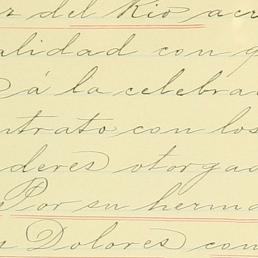 r del Rio acr
alidad con q
á la celebrac
ntrato con los
deres otorgad
Por su herma
s Dolores con